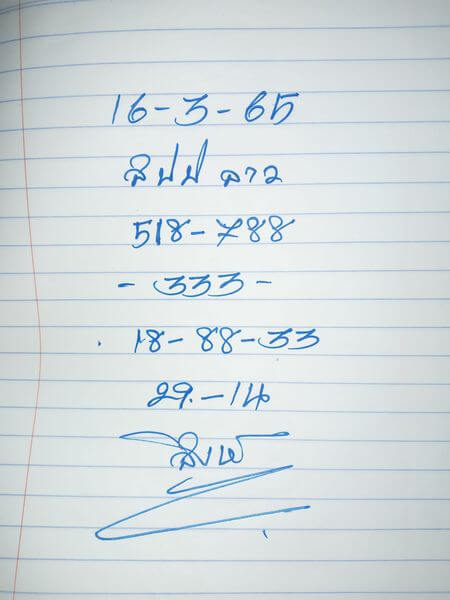 16-3-65
สปป ลาว
518-788
- 333 -
18-88-33
29.-14